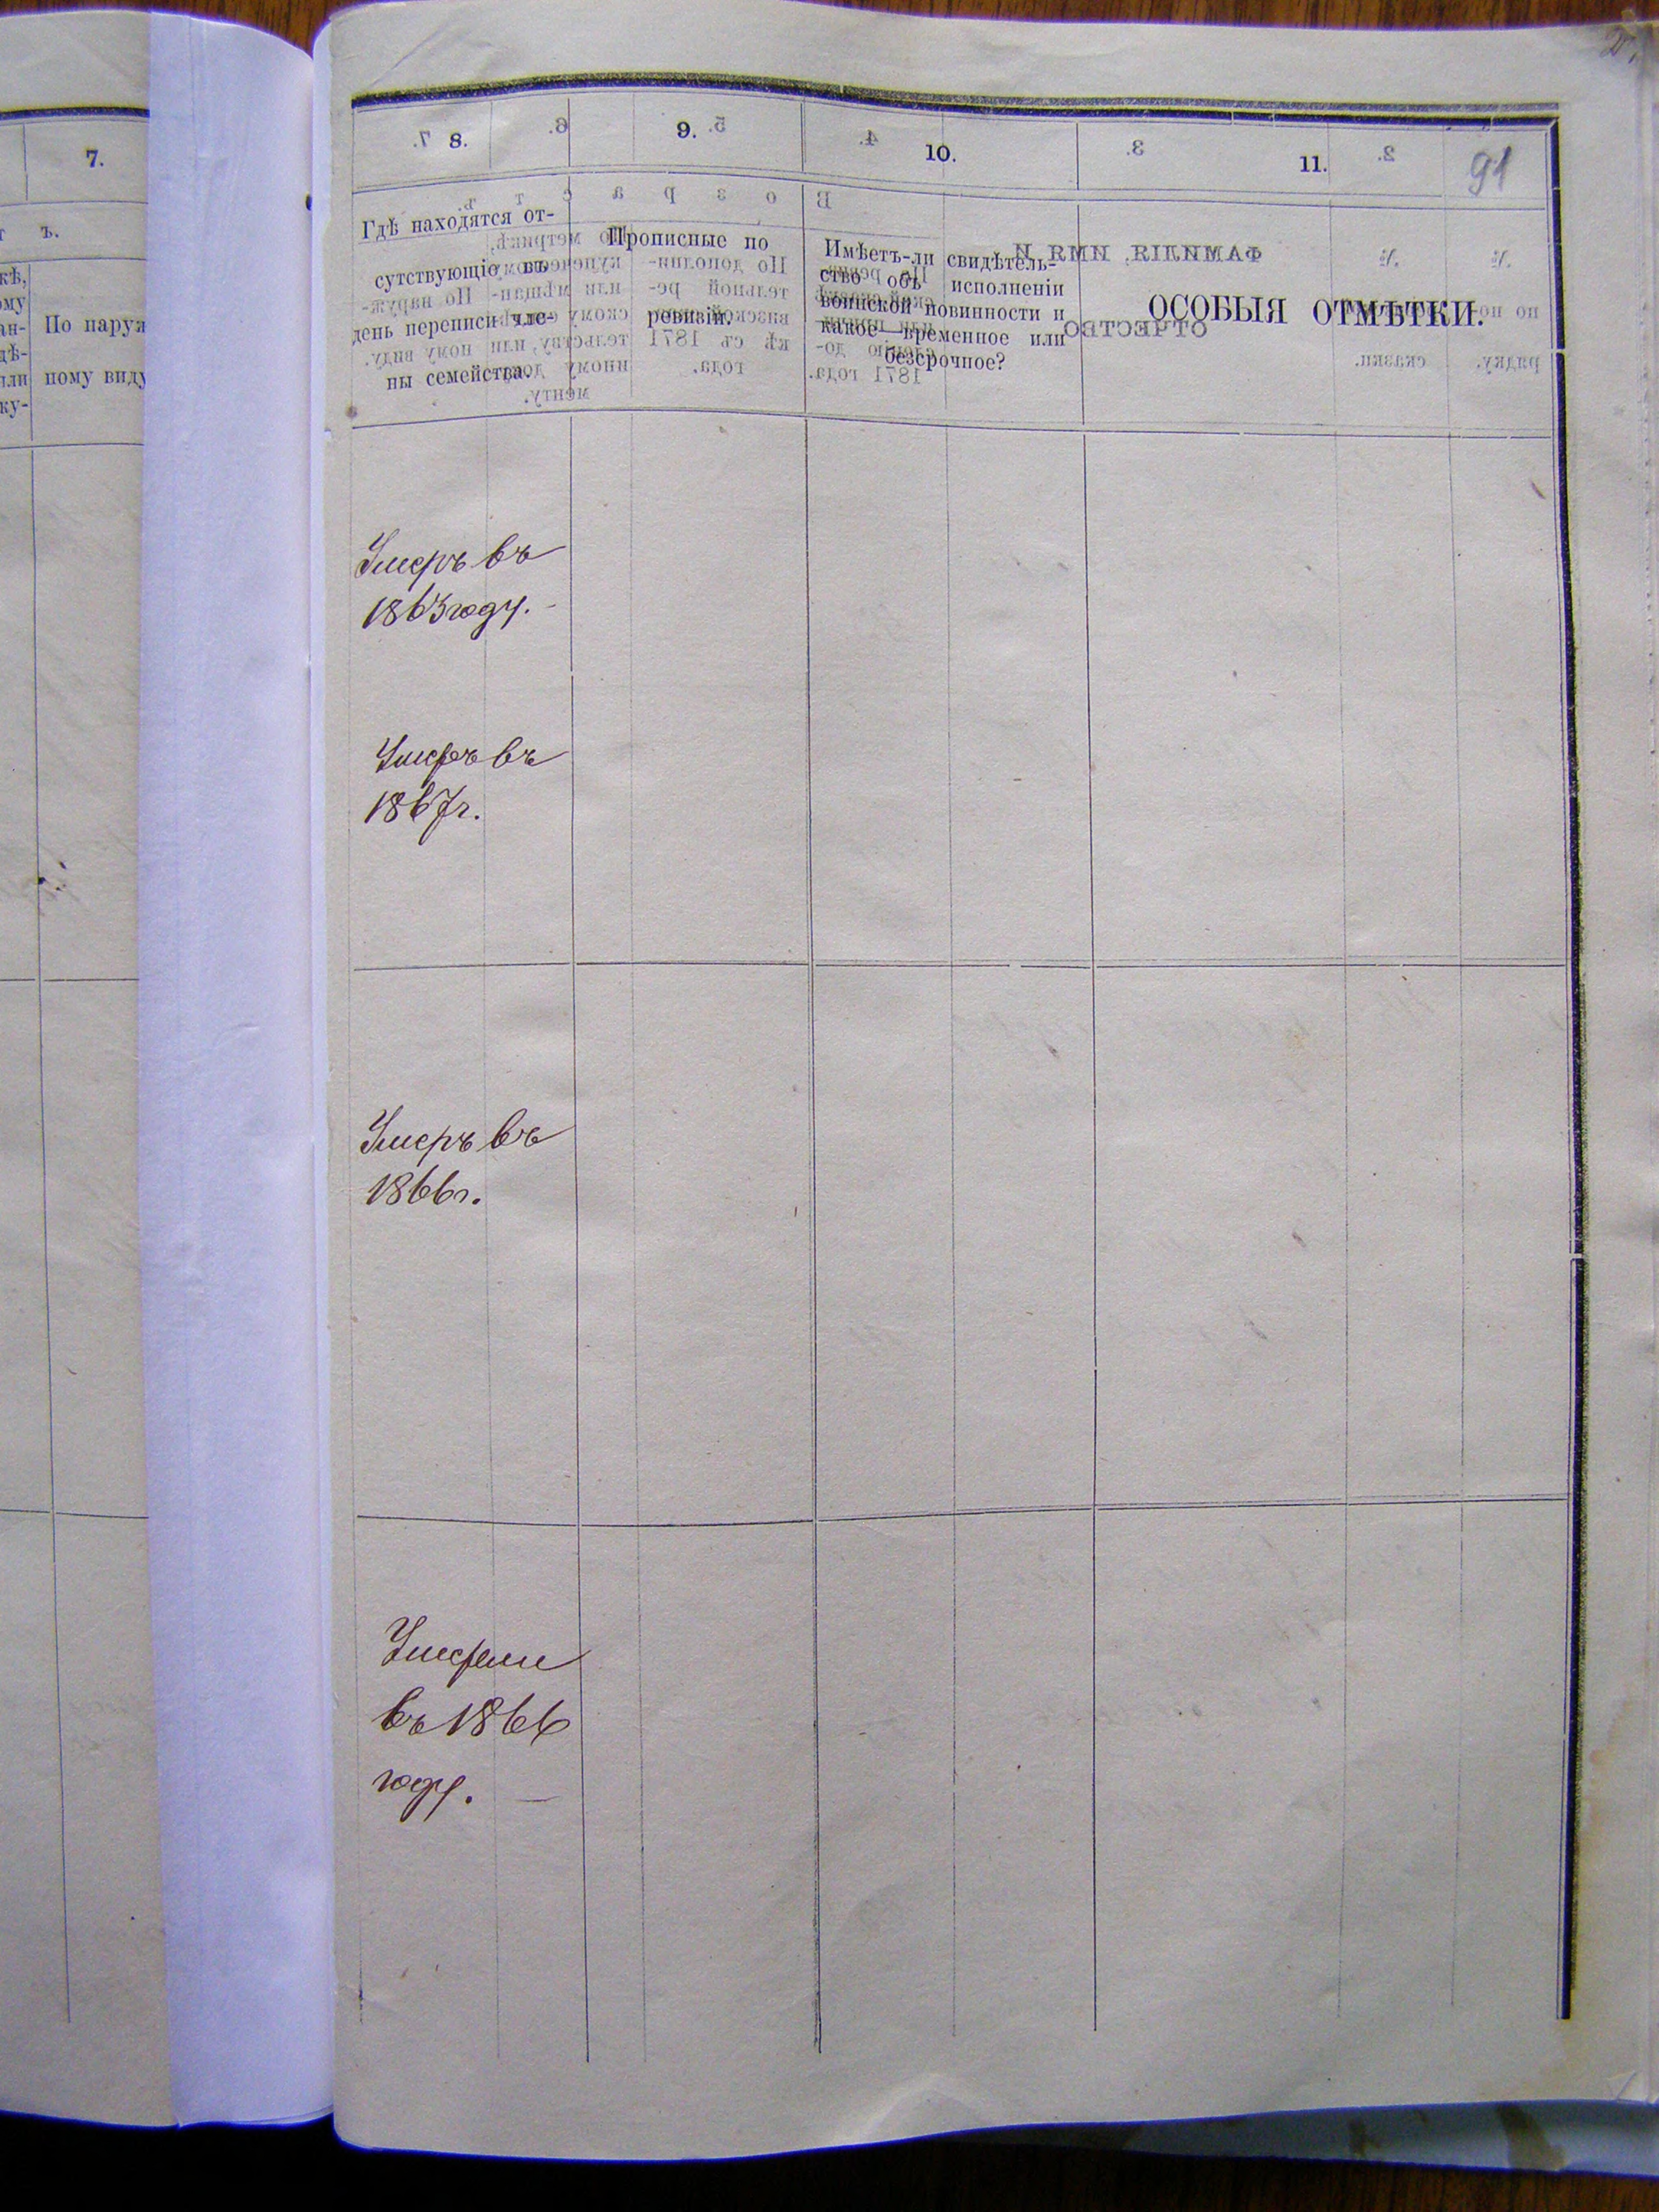 7.
ъ.
кѣ,
ому
ан-
дѣ-
или
ку-
По наруж
ному виду
8.
9.
10.
11.
91
Гдѣ находятся от-
сутствующіе въ
день переписи чле-
ны семейства.
Прописные по
ревизіи.
Имѣетъ-ли свидѣтель-
ство объ исполненіи
воинской повинности и
какое—временное или
безсрочное?
ОСОБЫЯ ОТМѢТКИ.
Умеръ въ
1863 году. -
Умеръ въ
1867 г.
Умеръ въ
1866 г.
Умерли
въ 1866
году. —